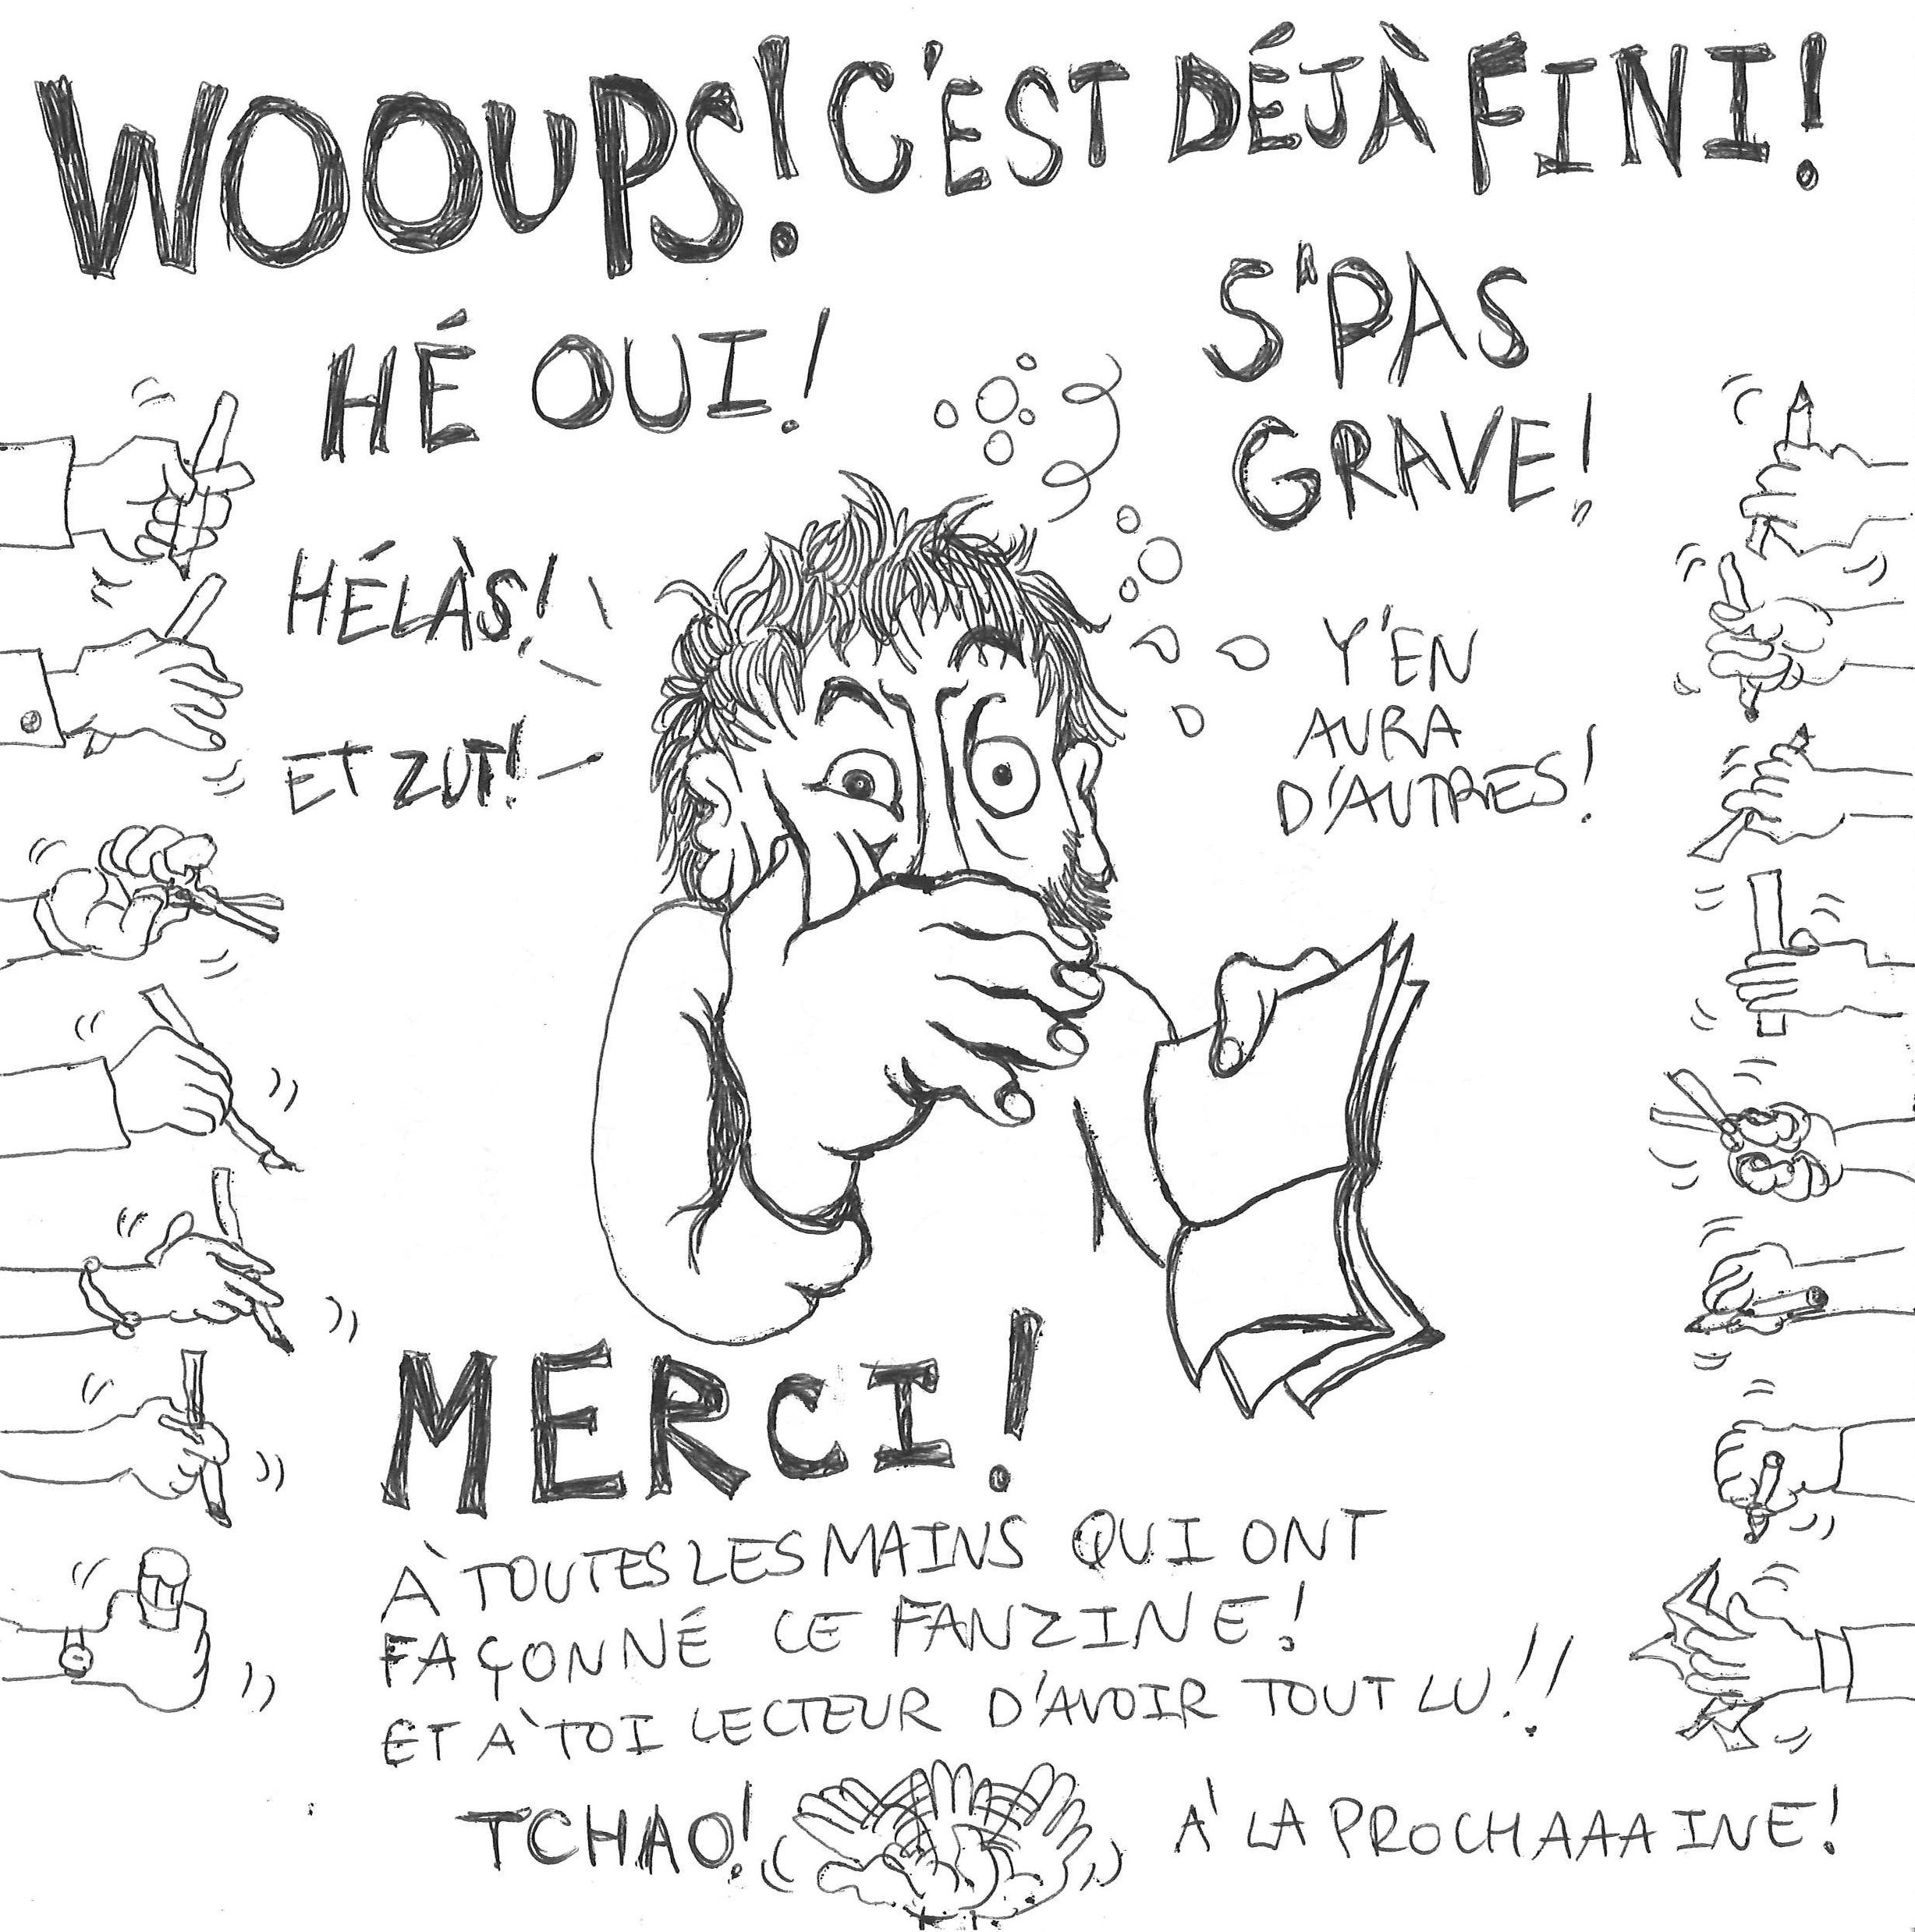 WOOUPS! C'EST DÉJÀ FINI!
HÉ OUI!
S'PAS
GRAVE!
HÉLÀS!
ET ZUT!
Y'EN
AURA
D'AUTRES!
MERCI!
À TOUTES LES MAINS QUI ONT
FAÇONNÉ CE FANZINE!
ET À TOI LECTEUR D'AVOIR TOUT LU!!
TCHAO!
À LA PROCHAAAINE!